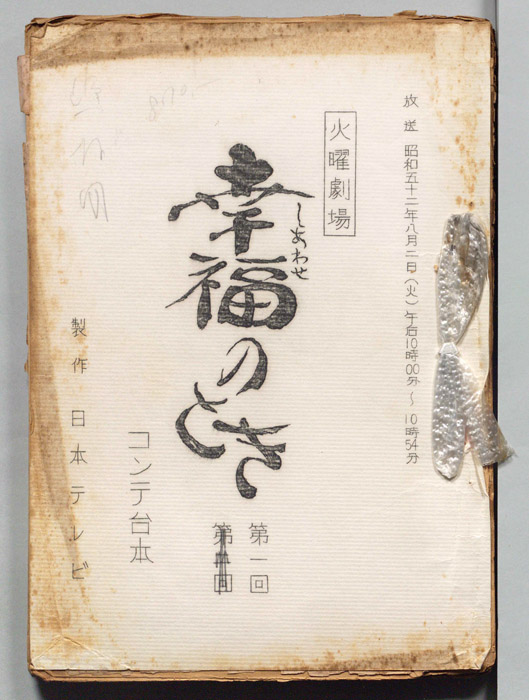 放送 昭和五十二年八月二日(火)午后10時00分〜10時54分
火曜劇場
幸福のとき
しあわせ
第一回
コンテ台本
製作 日本テレビ